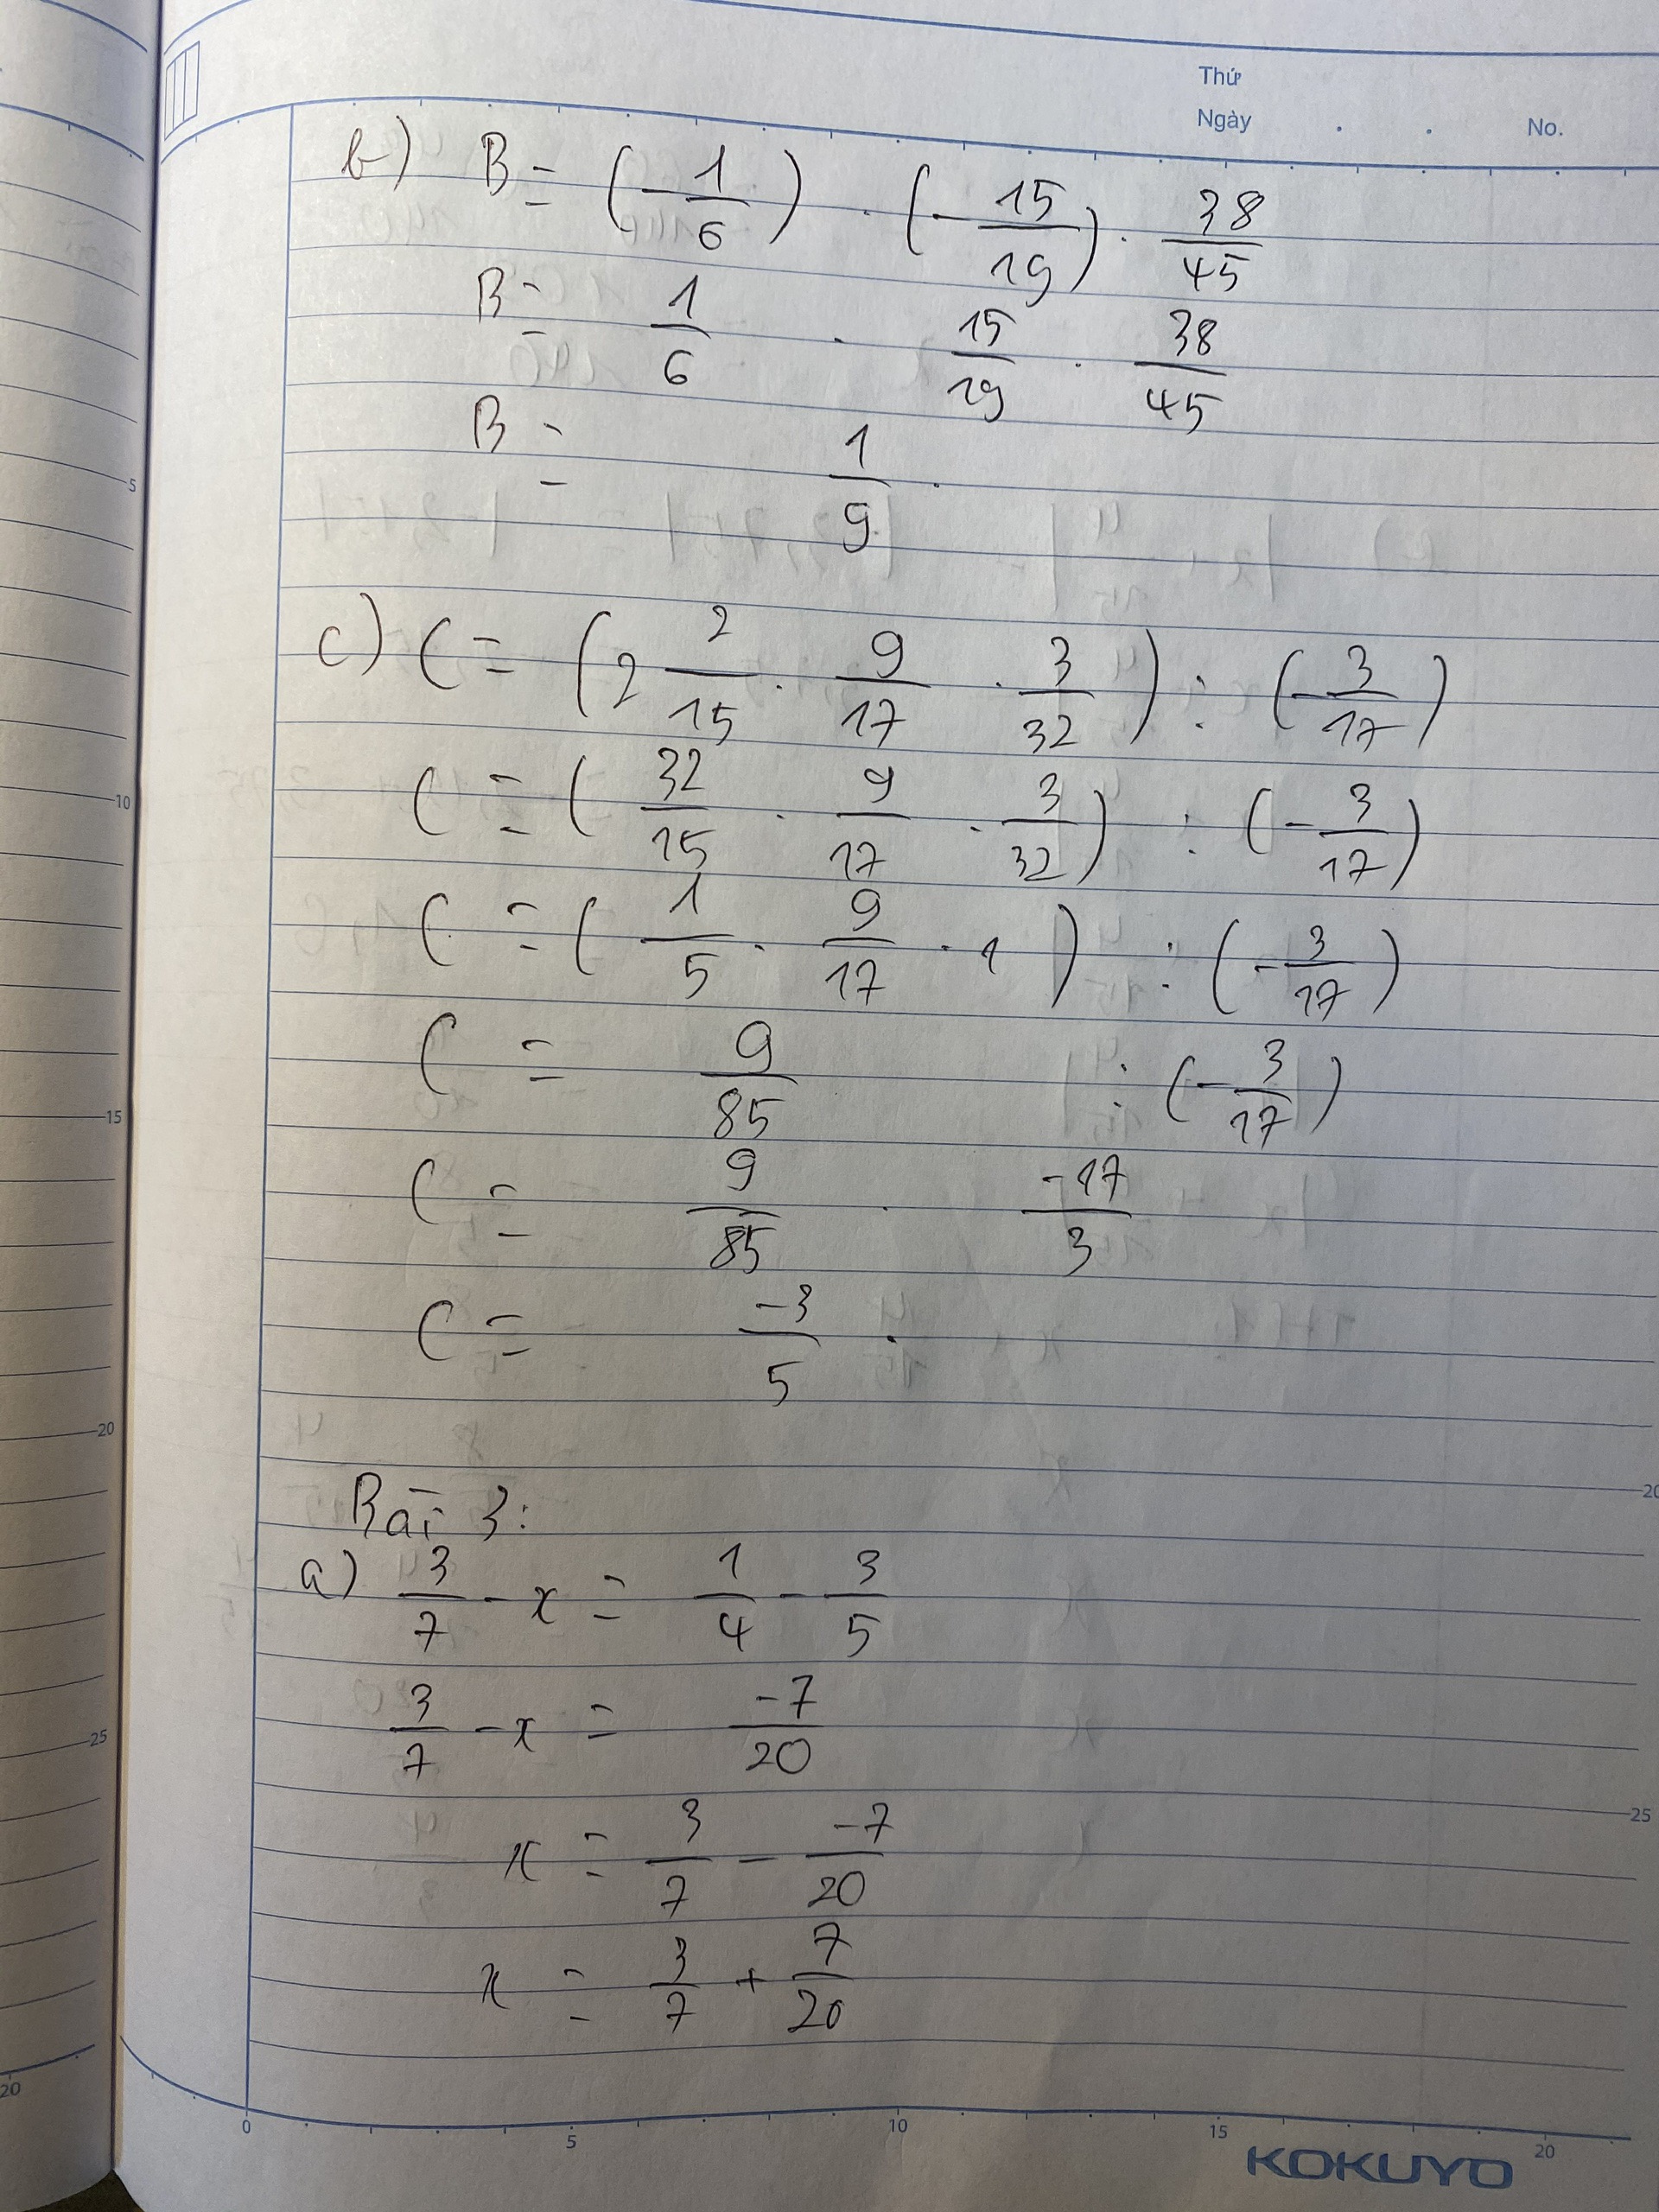 Thứ
Ngày . . No.
b) B = (-1/6) . (-15/19) . 38/45
B = 1/6 . 15/19 . 38/45
B = 1/9 .
c) C = (2 2/15 . 9/17 . 3/32) : (-3/17)
C = (32/15 . 9/17 . 3/32) : (-3/17)
C = (1/5 . 9/17 . 1) : (-3/17)
C = 9/85 : (-3/17)
C = 9/85 . -17/3
C = -3/5 .
Bài 3:
a) 3/7 - x = 1/4 - 3/5
3/7 - x = -7/20
x = 3/7 - -7/20
x = 3/7 + 7/20
5
10
15
20
25
20
25
20
0 5 10 15 20
KOKUYO